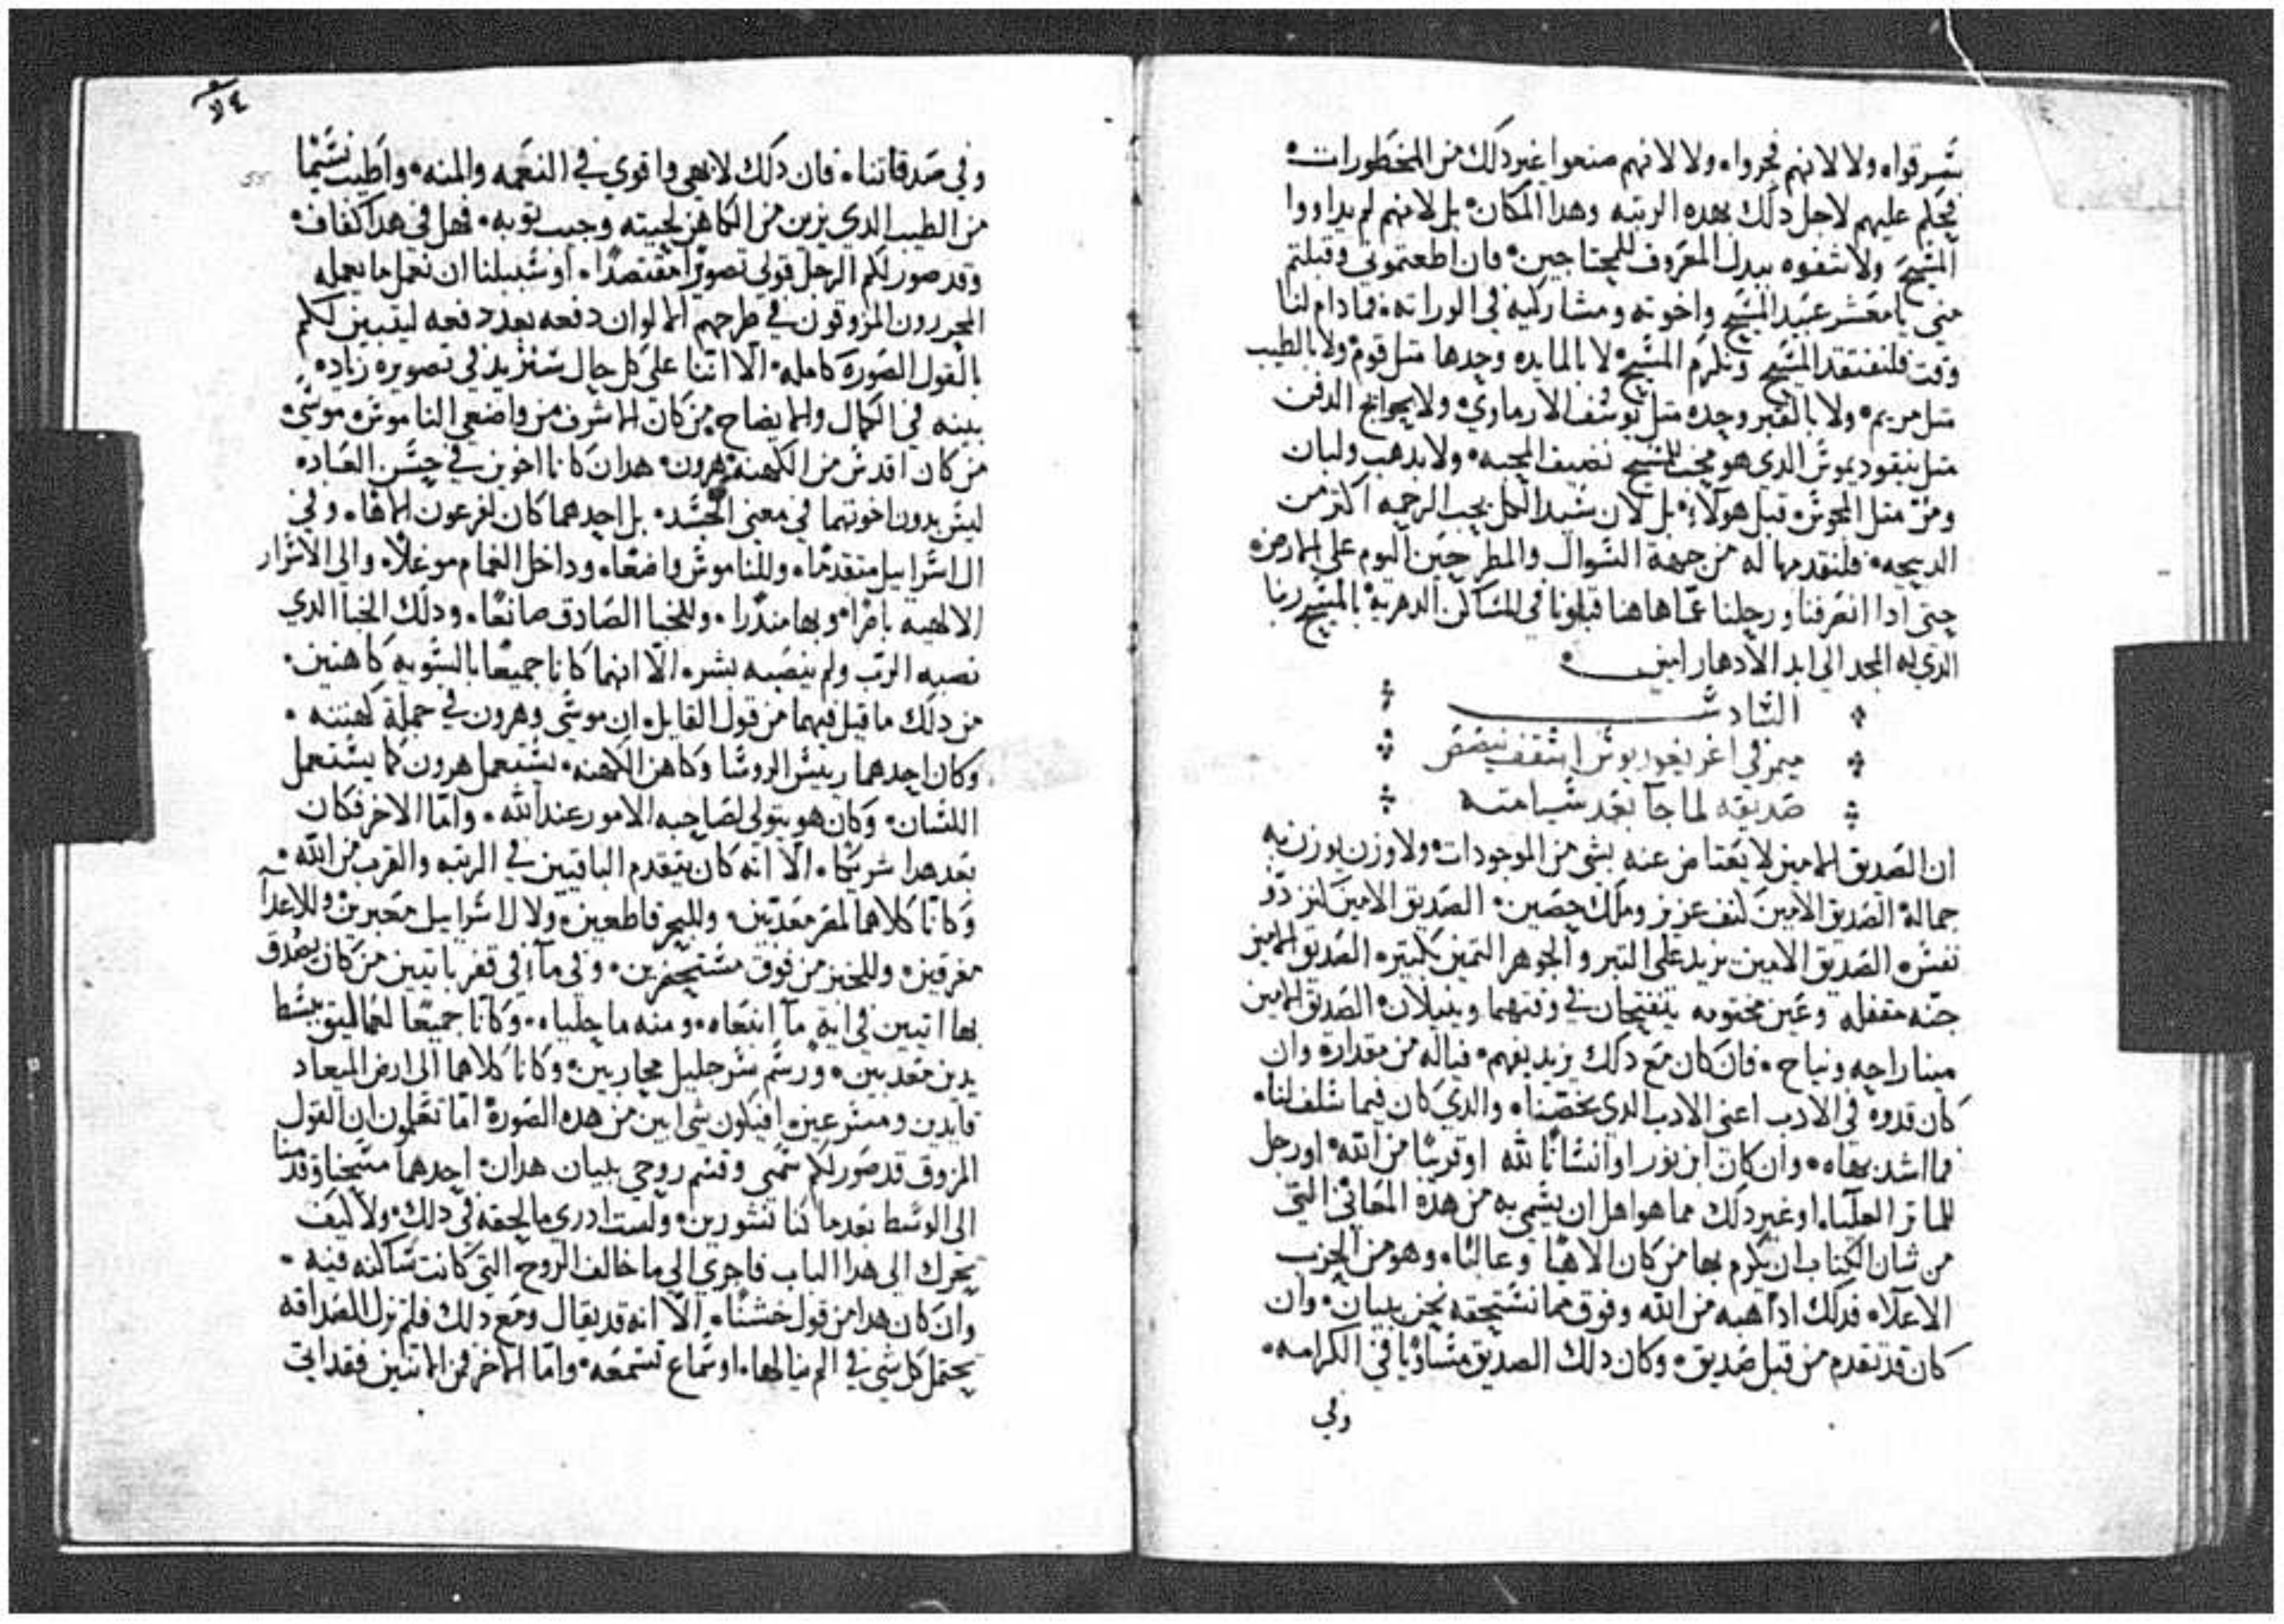 سرقوا، ولا لانهم فجروا، ولا لانهم صنعوا غير دلك من المحظورات.
فحكم عليهم لاجل دلك بهده الرتبه وهدا المكان. بل لانهم لم يداووا
المسيح ولا شفوه ببدل المعروف للمحتاجين. فان اطعتموني وقبلتم
مني يا معشر عبيد المسيح واخوته ومشاركيه في الوراته. فما دام لنا
وقت فلنفتقد المسيح ونكرم المسيح. لا بالمايده وحدها متل قوم. ولا بالطيب
متل مريم. ولا بالقبر وحده متل يوسف الارماوي. ولا بحوايج الدفن
متل نيقوديموس الدي هو محب للمسيح نصيف المحبه. ولا بدهب ولبان
ومر متل المجوس قبل هولاء. بل لان سيد الكل يحب الرحمه اكتر من
الدبيحه. فلنقدمها له من جهة السوال والمطرحين اليوم على الارض.
حتى ادا انصرفنا ورحلنا عما هاهنا قبلونا في المساكن الدهرية بالمسيح ربنا
الدي له المجد الى ابد الادهار امين.
السادس
ميمر في اغريغوريوس اسقف نيصص
صديقه لما جا بعد سيامته
ان الصديق الامين لا يعتاض عنه بشي من الموجودات. ولا وزن يوزن به
جماله. الصديق الامين كنف عزيز وملك حصين. الصديق الامين كنز دو
نفس. الصديق الامين يزيد على التبر والجوهر التمين بكتير. الصديق الامين
جنه مقفله وعين مختومه يتفتحان في وقتهما وينيلان. الصديق الامين
مينا راحه ونياح. فان كان مع دلك يزيد بفهم. فياله من مقدارة وان
كان قدوه في الادب اعنى الادب الدي يخصنا. والدي كان فيما سلف لنا.
فما اشد بهاه. وان كان ابن نور او انسانا لله او قريبا من الله. او رجل
للماتر العليا. او غير دلك مما هو اهل ان يسمى به من هده المعاني التي
من شان الكتاب ان يكرم بها من كان الاهيا وعاليا. وهو من الحزب
الاعلا. فدلك ادا هبه من الله وفوق مما نستحقه نحن ببيان. وان
كان قد تقدم من قبل صديق. وكان دلك الصديق مساويا في الكرامه.
وفي
وفي صدقاتنا. فان دلك لابهى واقوي في النعمه والمنه. واطيب نسيما
من الطيب الدي يزين من الكاهن لحيته وجيب توبه. فهل في هدا كفاف.
وقد صور لكم الرجل قولي تصويرا مقتصدا. او سبيلنا ان نعمل ما يعمله
المحررون المزوقون في طرحهم الالوان دفعه بعد دفعه ليتبين لكم
بالقول الصورة كامله. الا اننا على كل حال سنزيد في تصويره زياده
بينه في الكمال والايضاح. من كان اشرف من واضعي الناموس. موسى.
من كان اقدس من الكهنة. هرون. هدان كانا اخوين في حسن العباده
ليس بدون اخوتهما في معنى الجسد. بل احدهما كان لفرعون الاها. وفي
ال اسراييل متقدما. وللناموس واضعا. وداخل الغمام موغلا. والى الاسرار
الالهيه باصرا وبها مندرا. وللخبا الصادق صانعا. ودلك الخبا الدي
نصبه الرب ولم ينصبه بشر. الا انهما كانا جميعا بالسويه كاهنين.
من دلك ما قيل فيهما من قول القايل. ان موسى وهرون في جملة كهنته.
وكان احدهما رييس الروسا وكاهن الكهنه. يستعمل هرون كما يستعمل
اللسان. وكان هو يتولى لصاحبه الامور عند الله. واما الاخر فكان
بعد هدا شريكا. الا انه كان يتقدم الباقيين في الرتبه والقرب من الله.
وكانا كلاهما لمصر معدبين. وللبحر قاطعين. ولال اسراييل معبرين. وللاعدا
مغرقين. وللخبز من فوق مستحضرين. وفي مآء في قفر
بها اتيين في اية مآ ابتعاه. ومنه ما حلياه. وكانا جميعا لعماليق ببسط
يدين معدبين. ورسم سر جليل محاربين. وكانا كلاهما الى ارض الميعاد
قايدين ومسرعين. افيكون شي ابين من هده الصورة اما تعلمون ان القول
المزوق قد صور لكم سمي وقسم روحي ببيان هدان. احدهما مسحنا وقدمنا
الى الوسط بعد ما كنا نستورين. ولست ادري ما لحقه في دلك. ولا كيف
تحرك الى هدا الباب فاجري الي ما خالف الروح التي كانت ساكنه فيه.
وان كان هدا من قول خشنا. الا انه قد يقال ومع دلك فلم تزل الصداقه
تحتمل كل شي في الم ينالها. او سماع تسمعه. واما الاخر من الاتنين فقد اتى